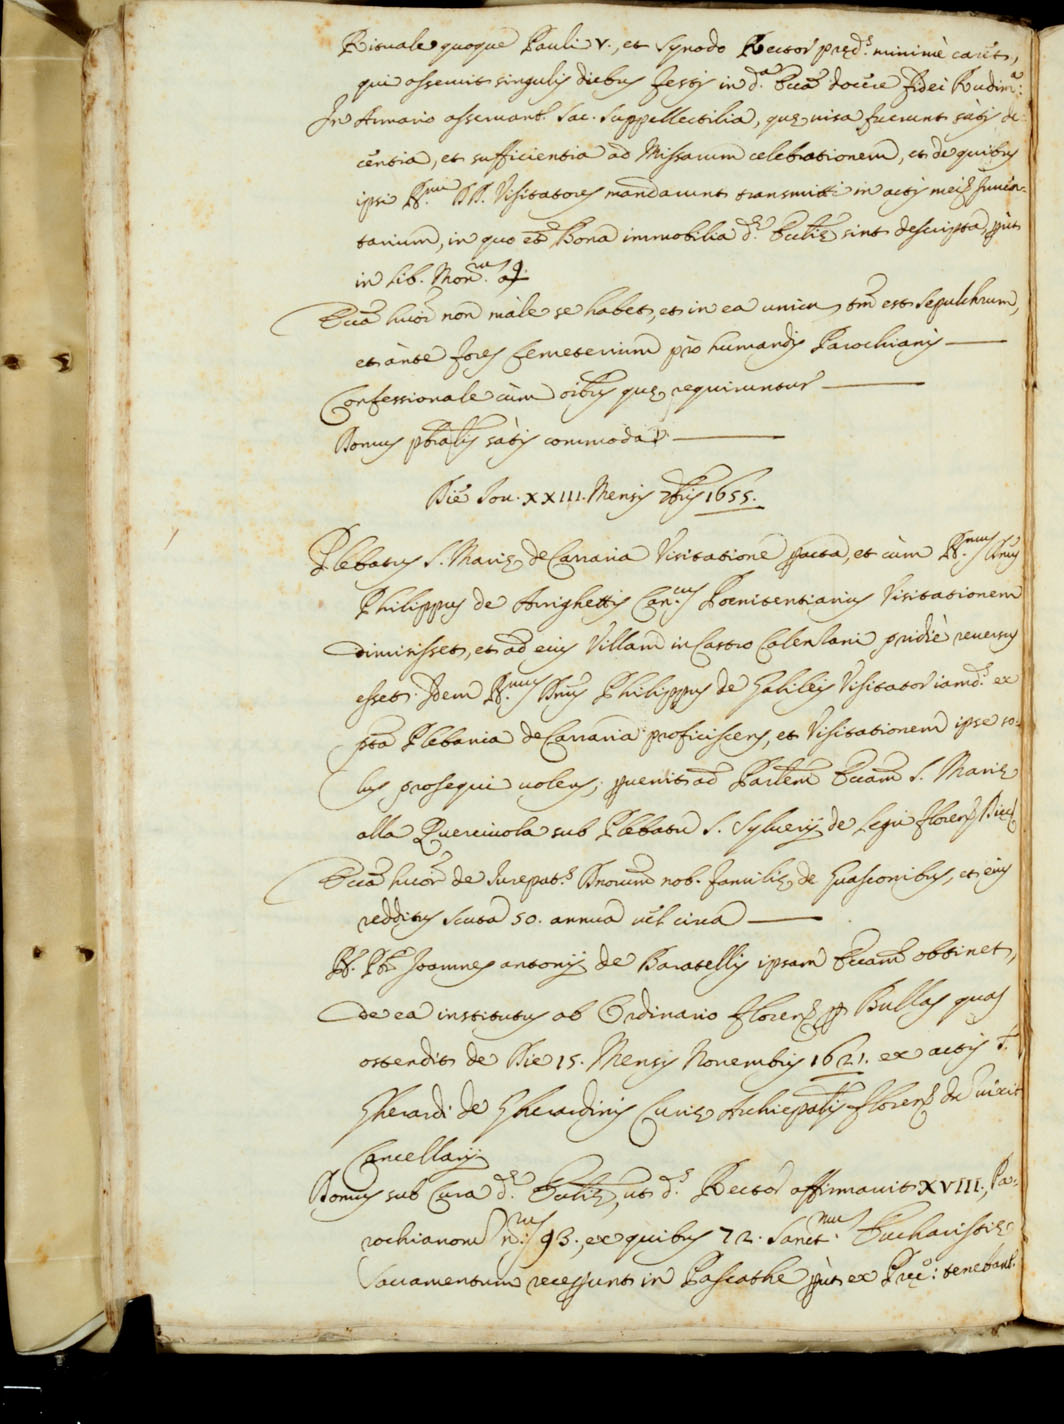 Rituale quoque Pauli V., et Synodo Rector pręd.s minimè caret,
qui asseruit singulis diebus festis in d.a Ecc.a docere fidei Rudim.a:
In Armario asservant.r Sac. Suppellectilia, quę visa fuerunt satis de-
centia, et sufficientia ad Missarum celebrationem, et de quibus
ipsi R.mi DD. Visitatores mandarunt transmitti in actis meis Inven-
tarium, in quo et Bona immobilia d.ę Eccl.ię sint descripta, put
in Lib. Mon.
Ecc.a huiõi non màle se habet, et in ea unicũ tm̃ est Sepulchrum,
et ànte fores Cemeterium prò humandis Parochianis
Confessionale cùm oĩbus quę requiruntur
Domus pb̃ralis satis commoda
Die Iou. XXIII. Mensis 7bris 1655.
Plebatus S. Marię de Carraria Visitatione pacta, et cùm R.mus Dnus
Philippus de Arrighettis Can.cus Poenitentiarius Visitationem
dimisisset, et ad eius Villam in Castro Calenzani pridiè reversus
esset. Idem R.mus Dnus Philippus de Galileis Visitator iamd.s ex
pta Plebania de Carraria proficiscens, et Visitationem ipse so-
lus prosequi volens, pvenit ad Parlem Eccam S. Marię
alla Querciuola sub Plebatu S. Sylverij de Legri Florens Diec.
Ecc.a huiõi de Iurepat.s Dnorum nob. familię de Guasconibus, et eius
redditus Scuta 50. annua vel circa
R. Pb̃r Joannes Antonij de Baratellis ipsam Eccam obtinet,
de ea institutus ab Ordinario Floren.s p Bullas quas
ostendit de Die 15. Mensis Novembris 1621. ex actis
Gherardi de Gherardinis Curię Archiepalis Floren.s du vixit
Cancellarij
Domus sub Cura d.ę Eccl.ię, ut d.s Rector affirmavit XVIII., Pa-
rochianorũ n.rus 93., ex quibus 72. Sanct.mũ Eucharistię
Sacramentum recepunt in Pascathe put ex Pręc.o: tenebant.